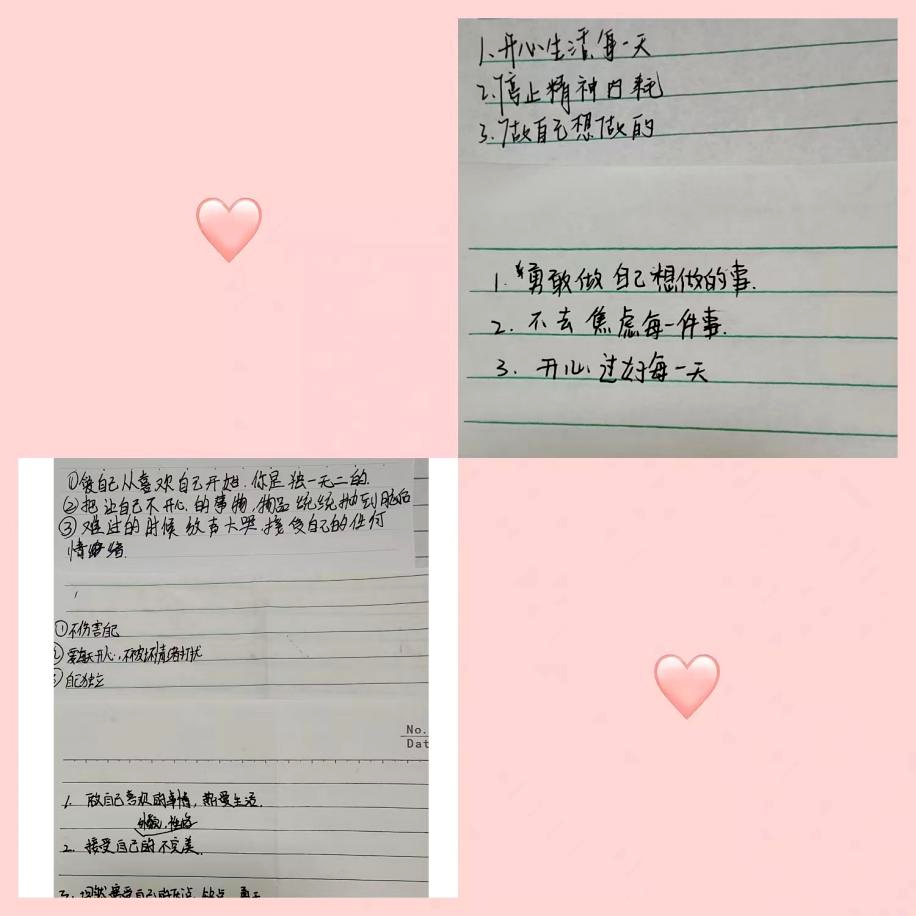 1、开心生活每一天
2、停止精神内耗
3、做自己想做的
1. 勇敢做自己想做的事.
2. 不去焦虑每一件事.
3. 开心过好每一天
①爱自己从喜欢自己开始.你是独一无二的.
②把让自己不开心的事物,物品统统抛到脑后
③难过的时候放声大哭.接受自己的任何
情绪.
①不伤害自己
开心,不被坏情绪打扰
自己独立
No.
Dat
1. 做自己喜欢的事情,热爱生活.
外貌,性格
2. 接受自己的不完美.
3. 坦然接受自己的